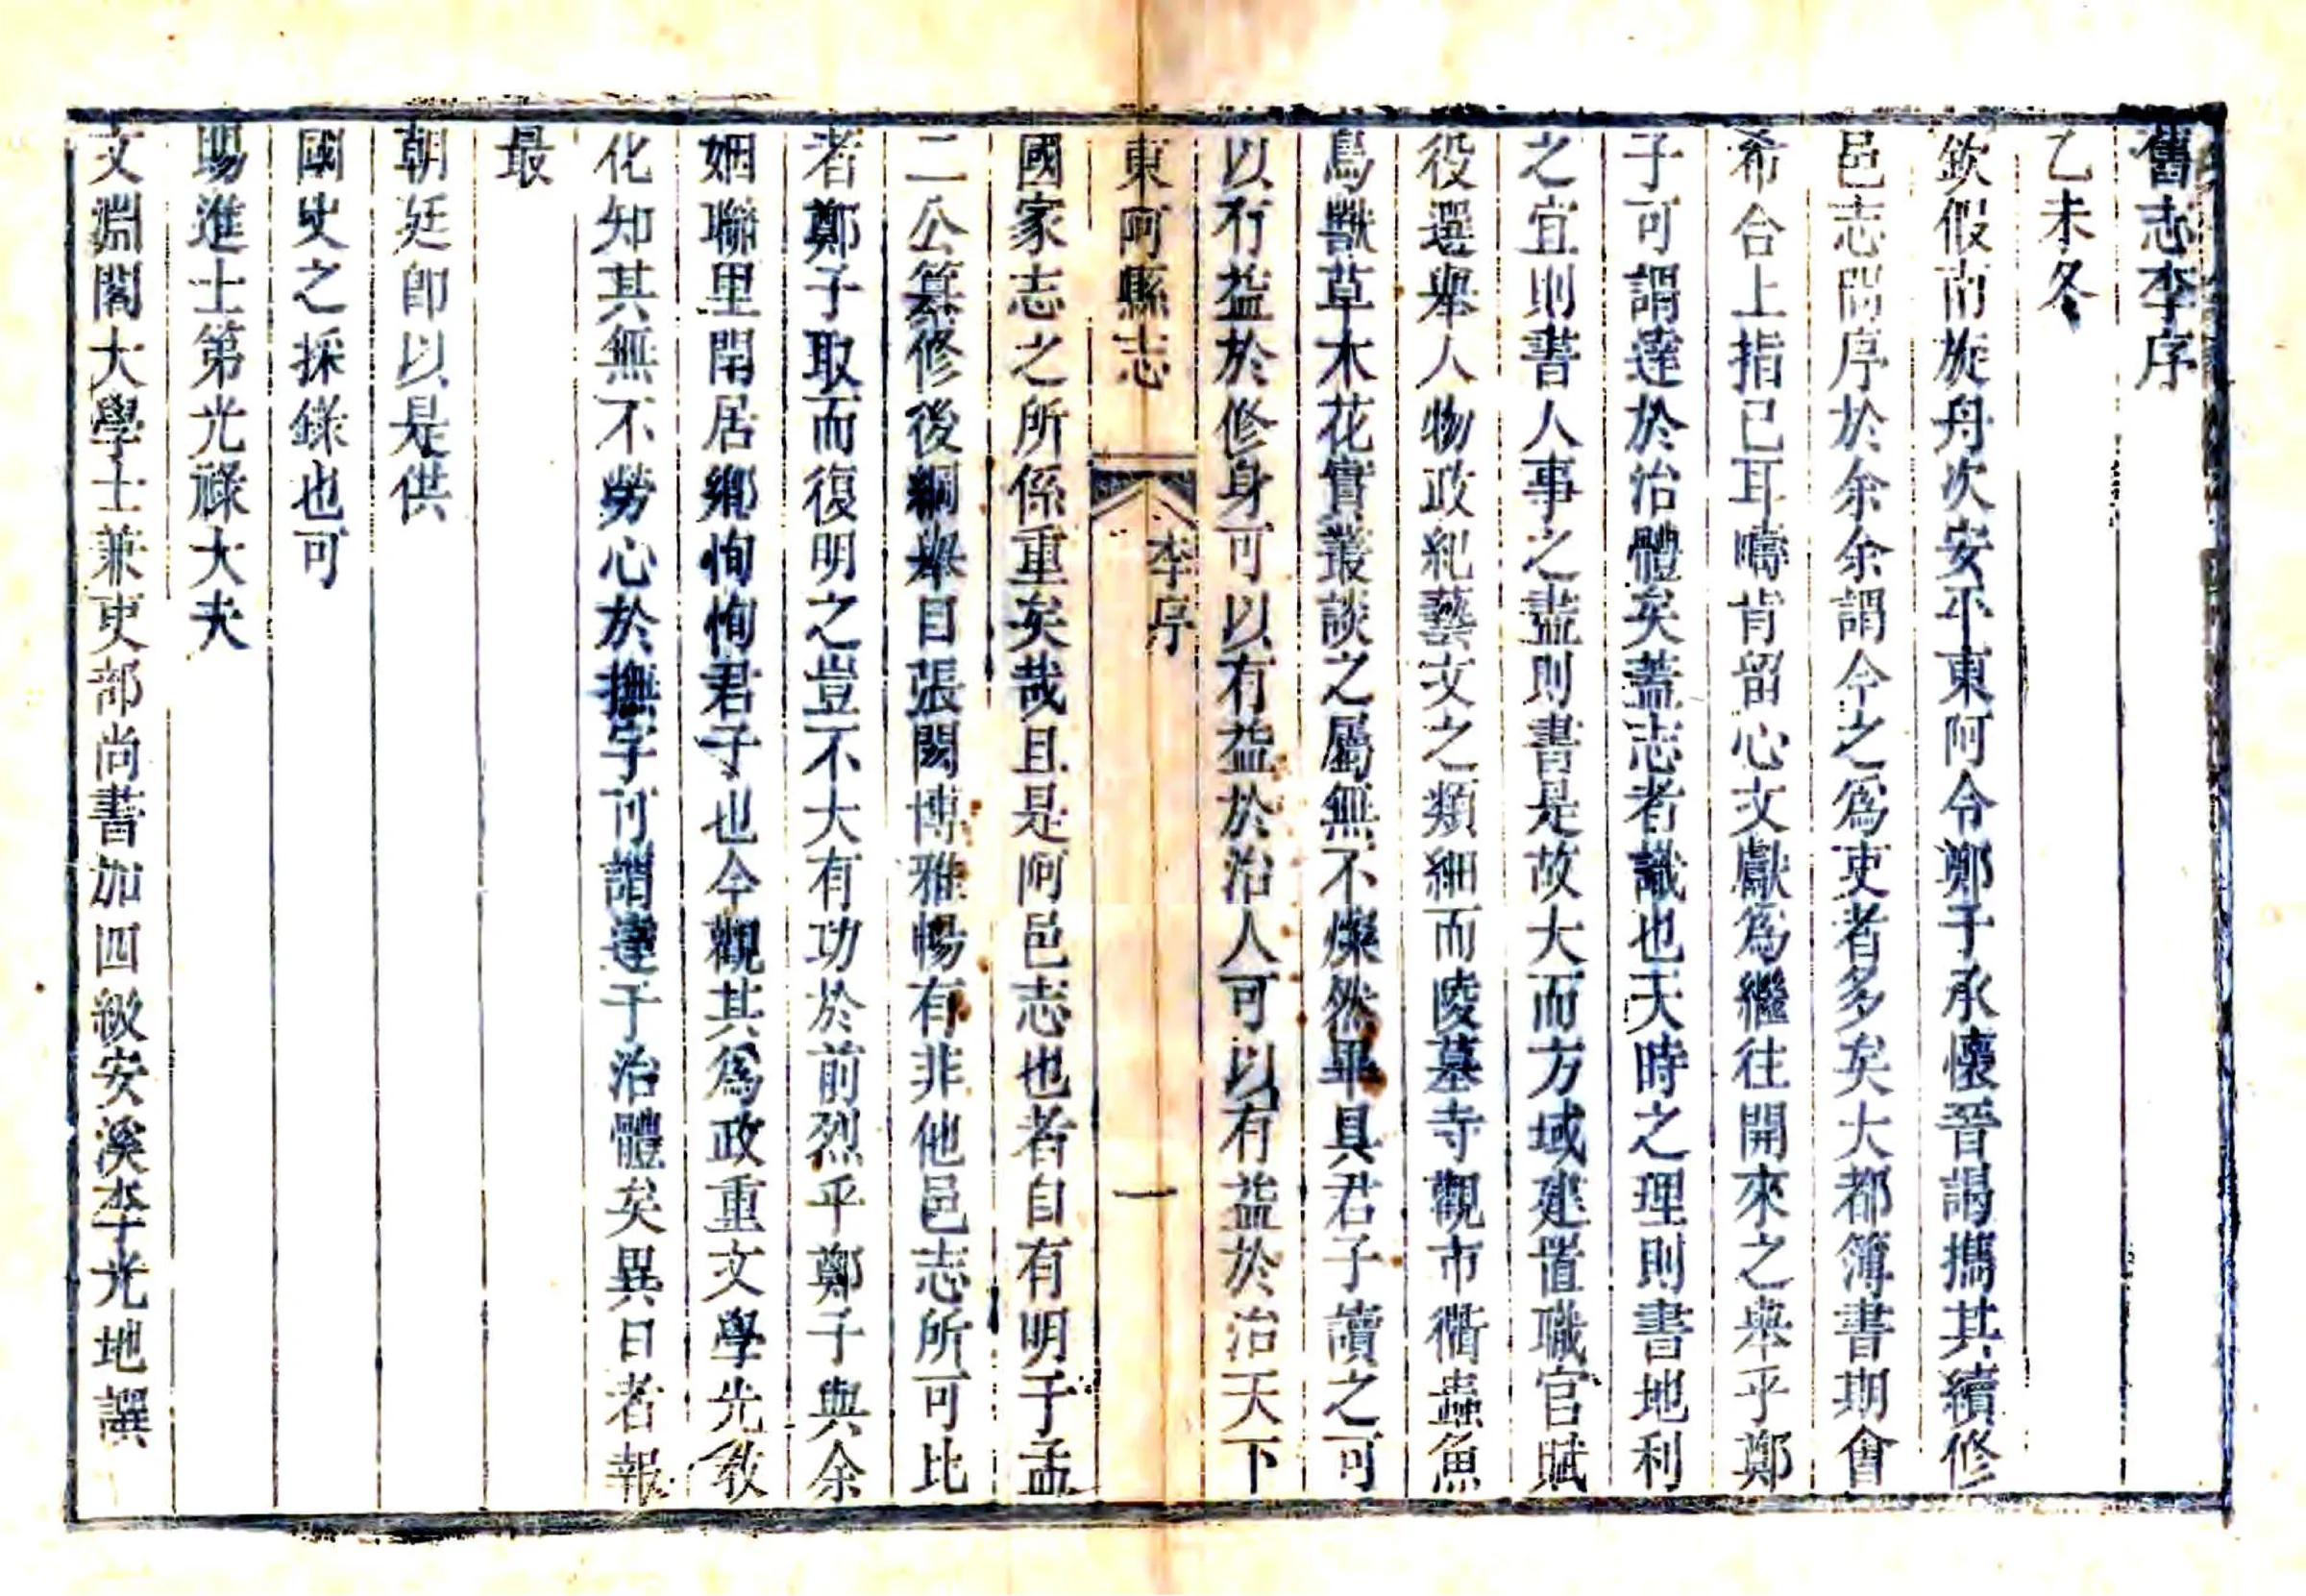 舊志李序
乙未冬
欽假南旋舟次安平東阿令鄭子承懷晉謁攜其續修
邑志問序於余余謂今之爲吏者多矣大都簿書期會
希合上指已耳疇肯留心文獻爲繼往開來之舉乎鄭
子可謂達於治體矣蓋志者識也天時之理則書地利
之宜則書人事之盡則書是故大而方域建置職官賦
役選舉人物政紀藝文之類細而陵墓寺觀市衢蟲魚
鳥獸草木花實叢談之屬無不燦然畢具君子讀之可
以有益於修身可以有益於治人可以有益於治天下
東阿縣志
李序
一
國家志之所係重矣哉且是阿邑志也者自有明于孟
二公纂修後綱舉目張閎博雅暢有非他邑志所可比
者鄭子取而復明之豈不大有功於前烈乎鄭子與余
姻聯里閈居鄉恂恂君子也今觀其爲政重文學光教
化知其無不勞心於撫字可謂達于治體矣異日者報
最
朝廷卽以是供
國史之採錄也可
賜進士第光祿大夫
文淵閣大學士兼吏部尚書加四級安溪李光地譔